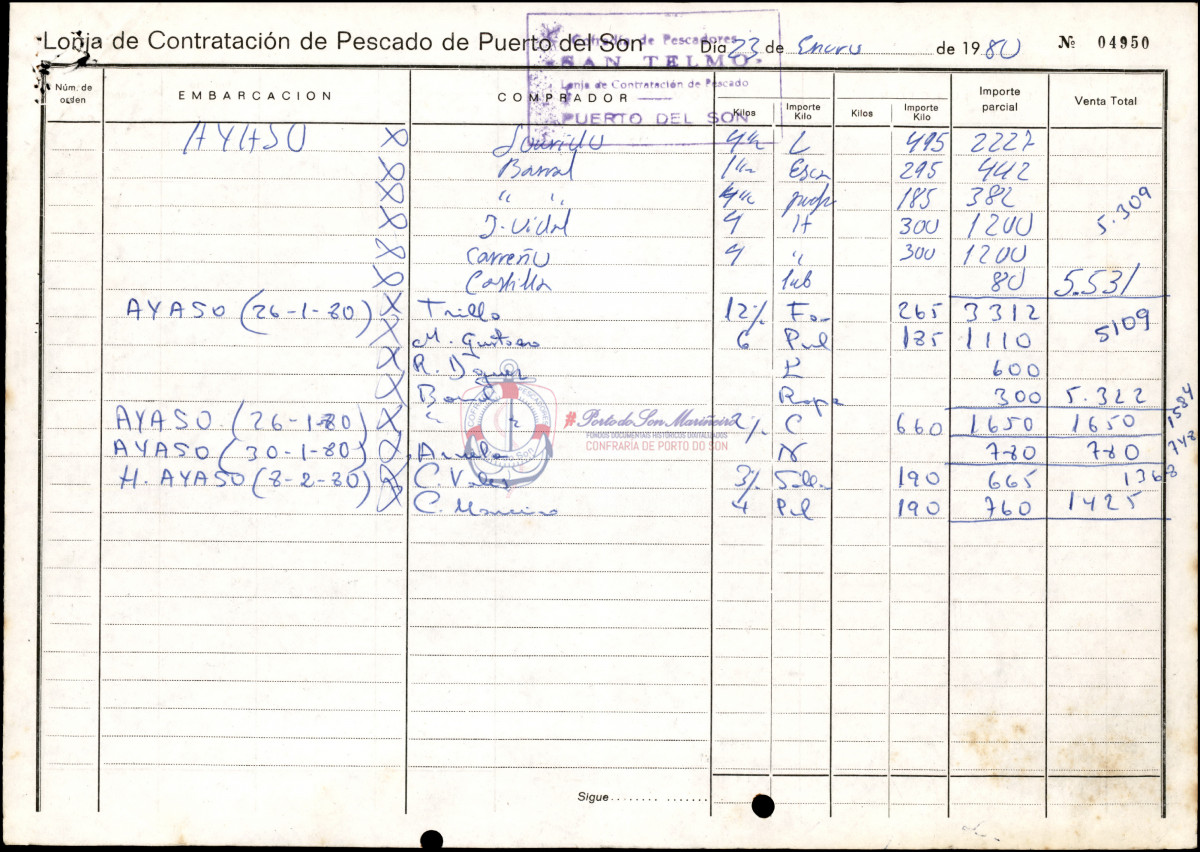 Lonja de Contratación de Pescado de Puerto del Son Día 23 de Enero de 1980 Nº 04950
Cofradía de Pescadores
"SAN TELMO"
Lonja de Contratación de Pescado
PUERTO DEL SON
Núm. de orden EMBARCACION COMPRADOR Kilos Importe Kilo Kilos Importe Kilo Importe parcial Venta Total
AYASO X L 495 2227
X Barral 295 442
X " " 185 382
X J. Vidal 4 300 1200 5.309
X Carreño 4 " 300 1200
X Castilla 80 5.531
AYASO (26-1-80) X Trillo 12½ 265 3312
X M. 6 Pul 185 1110 5109
X R. 600
X 300 5.322
AYASO (26-1-80) X " 2½ C 660 1650 1650 1584
AYASO (30-1-80) X N 780 780 748
H. AYASO (8-2-80) X C. 3½ 190 665 1368
X C. 4 Pul 190 760 1425
CONFRARIA DE PESCADORES
Porto do Son
#Porto do Son Mariñeiro
FONDOS DOCUMENTAIS HISTÓRICOS DIXITALIZADOS
CONFRARÍA DE PORTO DO SON
Sigue